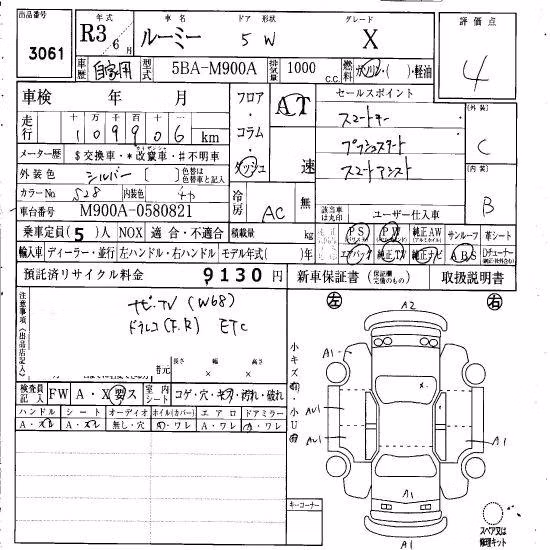 出品番号 年式 車名 ドア 形状 グレード 評価点
3061 R3 6月 ルーミー 5 W X 4
車歴 自家用 型式 5BA-M900A 排気量 1000 c.c. 燃料 ガソリン・( )・軽油
車検 年 月 フロア・コラム・ダッシュ AT 速 セールスポイント
走行 十万 万 千 百 十 一
109906 km
スマートキー
プッシュスタート
スマートアシスト
外装 C
内装 B
メーター歴 $交換車・*改竄車・#不明車
外装色 シルバー [ ] 色替は色替車と記入
カラーNo S28 内装色
冷房 AC 無
車台番号 M900A-0580821
該当車は丸印 ユーザー仕入車
乗車定員 (5)人 NOX 適合・不適合 積載量 kg
PS PW 純正AW サンルーフ 革シート
輸入車 ディーラー・並行 左ハンドル・右ハンドル モデル年式( )年
エアバッグ 純正TV 純正ナビ ABS Dチューナー
預託済リサイクル料金 9130円 新車保証書 (保証欄完備のもの) 取扱説明書
注意事項(出品店記入)
ナビTV (W68)
ドラレコ(F.R) ETC
長さ 幅 高さ
左 右
A2
A1
A1
AU1
AU1
A1
A1
A1
小キズ 小U
検査員記入 FW A・X 要ス 室内シート コゲ・穴・キズ・汚れ・破れ
ハンドル シート オーディオ ホイル(カバー) エアロ ドアミラー
A・スレ A・スレ 無し・穴 A・ワレ A・ワレ A・ワレ
キーコーナー
スペア又は修理キット